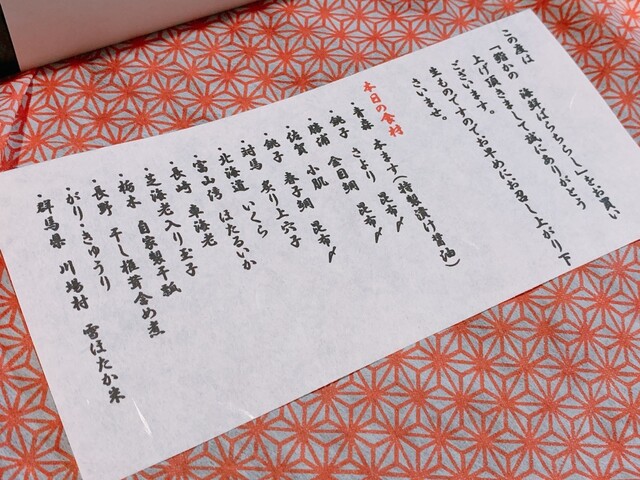 この度は
「鮨かの 海鮮ばらちらし」をお買い
上げ頂きまして誠にありがとう
ございます。
生ものですのでお早めにお召し上がり下
さいませ。
本日の食材
・青森 本ます(特製漬け醤油)
・銚子 さより 昆布〆
・勝浦 金目鯛 昆布〆
・佐賀 小肌
・銚子 春子鯛 昆布〆
・対馬 炙り上穴子
・北海道 いくら
・富山湾 ほたるいか
・長崎 車海老
・芝海老入り玉子
・栃木 自家製干瓢
・長野 干し椎茸含め煮
・がり・きゅうり
・群馬県 川場村 雪ほたか米